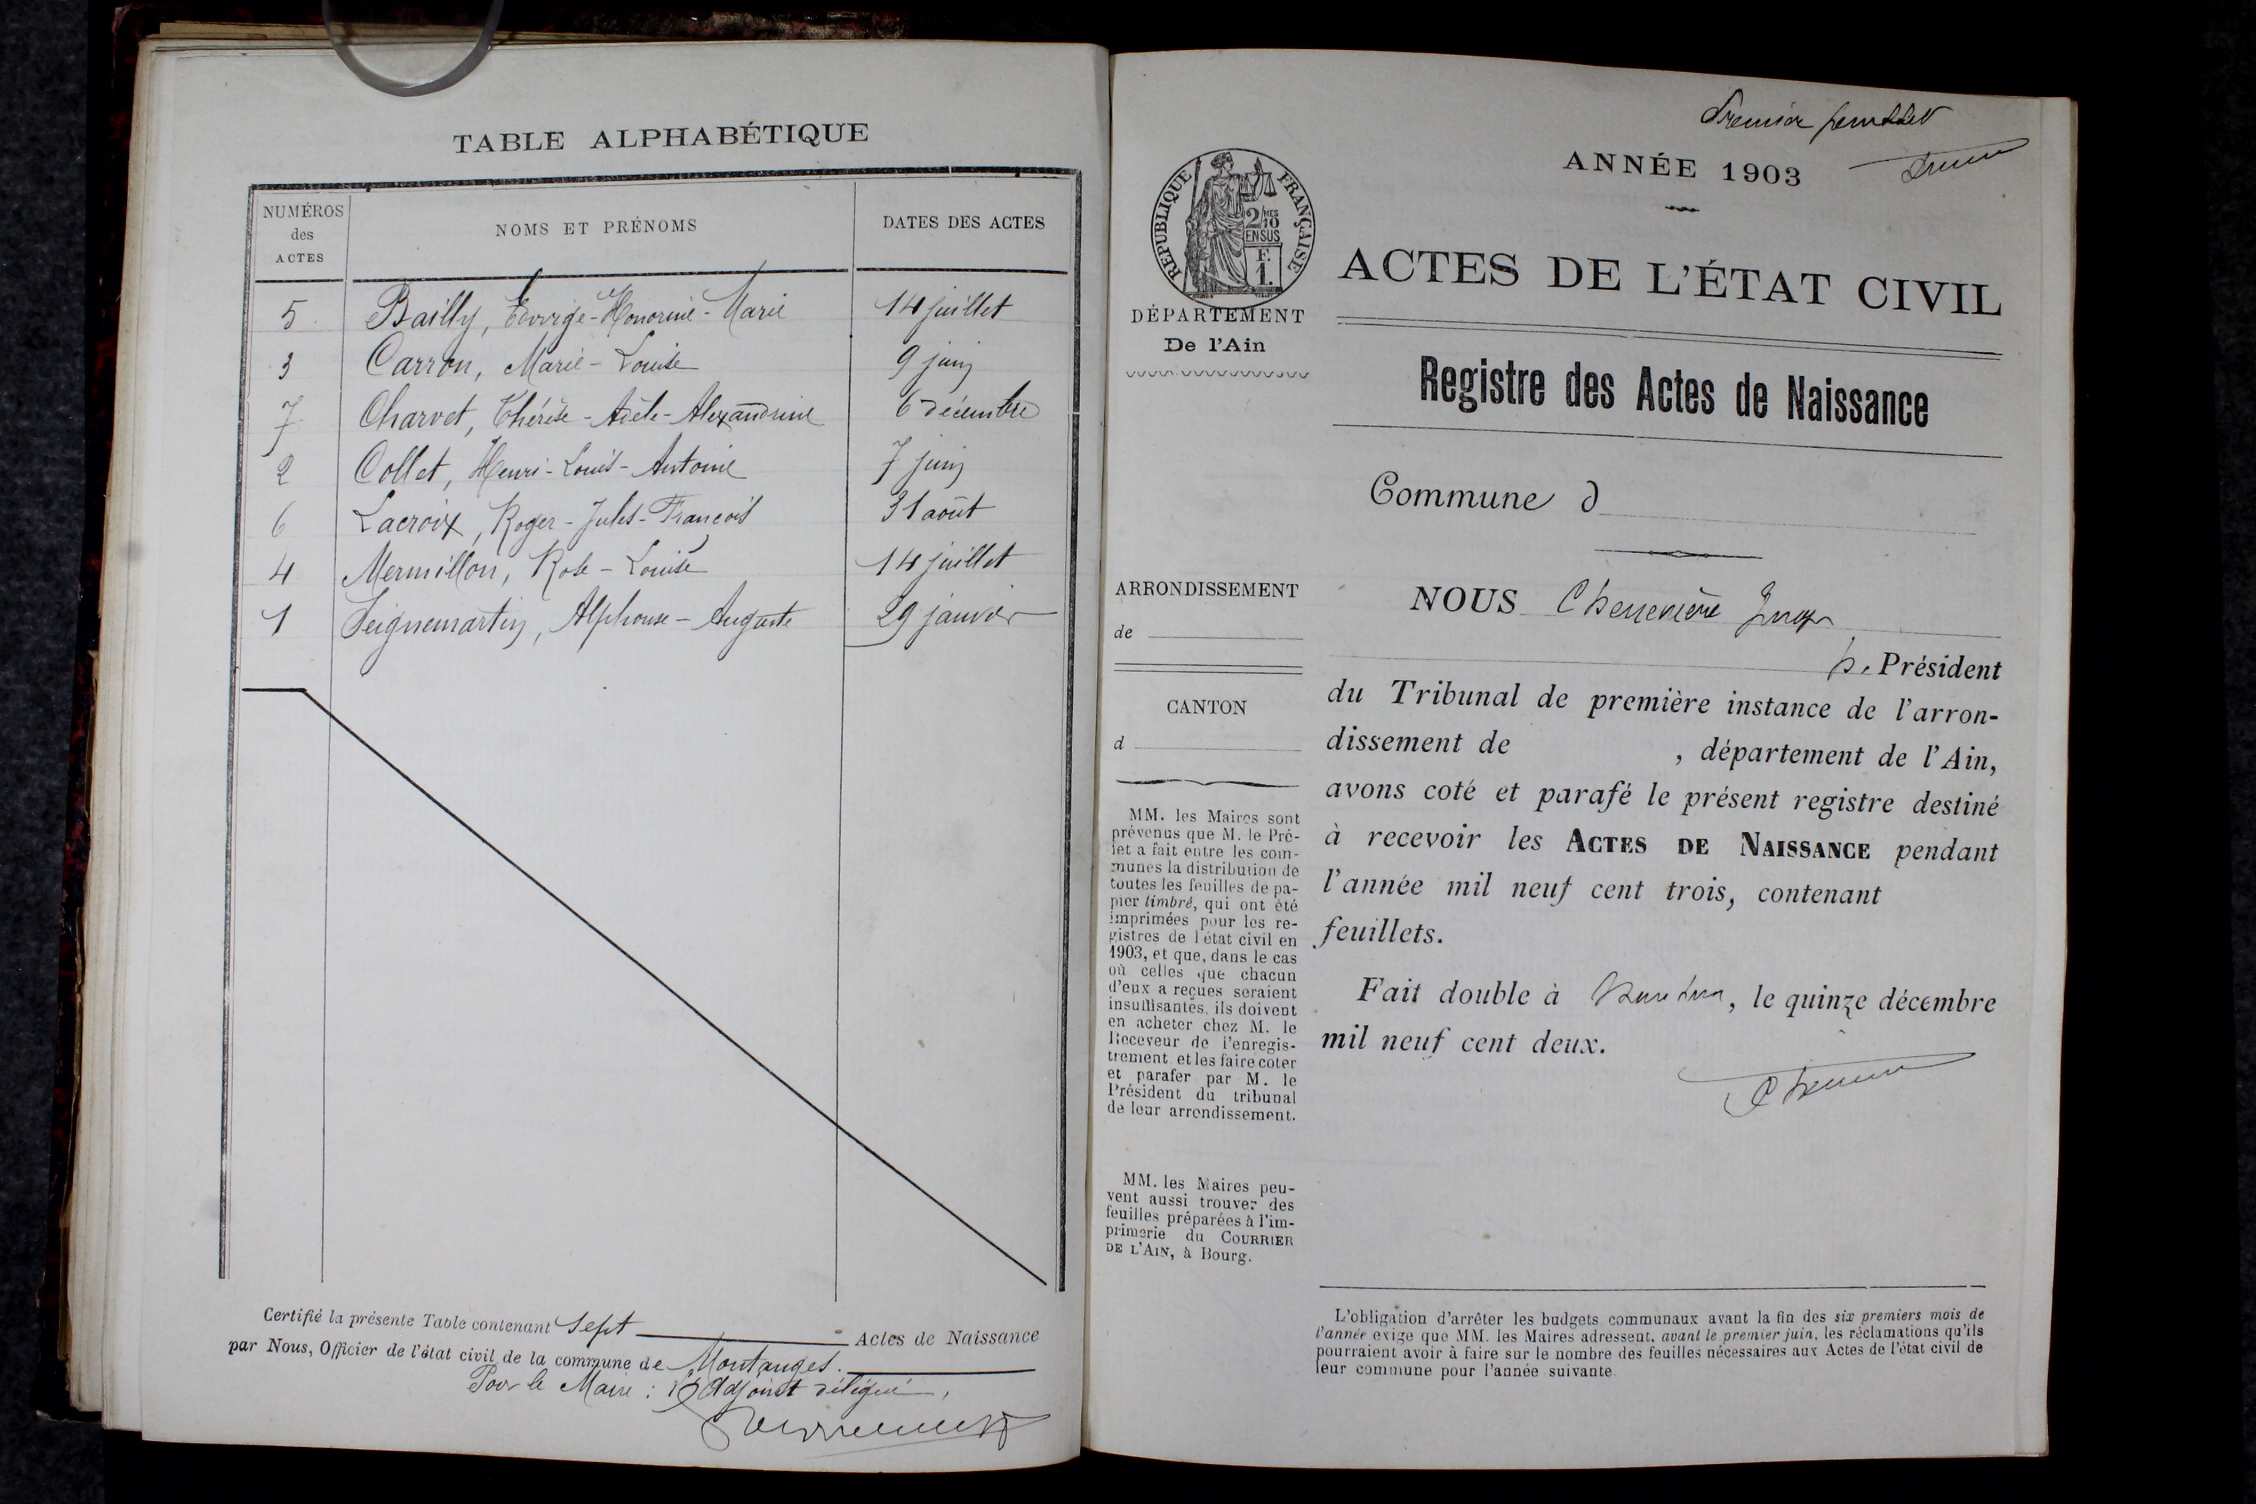 TABLE ALPHABÉTIQUE
NUMÉROS des ACTES
NOMS ET PRÉNOMS
DATES DES ACTES
5 Bailly, Edwige-Honorine-Marie 14 juillet
3 Carron, Marie-Louise 9 juin
7 Charvet, Thérèse-Adèle-Alexandrine 6 décembre
2 Collet, Henri-Louis-Antoine 7 juin
6 Lacroix, Roger-Jules-François 31 août
4 Mermillon, Rose-Louise 14 juillet
1 Seignemartin, Alphonse-Auguste 29 janvier
Certifié la présente Table contenant Sept Actes de Naissance
par Nous, Officier de l'état civil de la commune de Montanges.
Pour le Maire : l'Adjoint délégué,
Premier feuillet
RÉPUBLIQUE FRANÇAISE
2/10 MES
EN SUS
F.
1.
DÉPARTEMENT
De l'Ain
ARRONDISSEMENT
de
CANTON
d
MM. les Maires sont
prévenus que M. le Pré-
fet a fait entre les com-
munes la distribution de
toutes les feuilles de pa-
pier timbré, qui ont été
imprimées pour les re-
gistres de l'état civil en
1903, et que, dans le cas
où celles que chacun
d'eux a reçues seraient
insuffisantes, ils doivent
en acheter chez M. le
Receveur de l'enregis-
trement et les faire coter
et parafer par M. le
Président du tribunal
de leur arrondissement.
MM. les Maires peu-
vent aussi trouver des
feuilles préparées à l'im-
primerie du COURRIER
DE L'AIN, à Bourg.
ANNÉE 1903
ACTES DE L'ÉTAT CIVIL
Registre des Actes de Naissance
Commune d
NOUS Chenevière Juge
p. Président
du Tribunal de première instance de l'arron-
dissement de , département de l'Ain,
avons coté et parafé le présent registre destiné
à recevoir les ACTES DE NAISSANCE pendant
l'année mil neuf cent trois, contenant
feuillets.
Fait double à Nantua, le quinze décembre
mil neuf cent deux.
L'obligation d'arrêter les budgets communaux avant la fin des six premiers mois de
l'année exige que MM. les Maires adressent, avant le premier juin, les réclamations qu'ils
pourraient avoir à faire sur le nombre des feuilles nécessaires aux Actes de l'état civil de
leur commune pour l'année suivante.